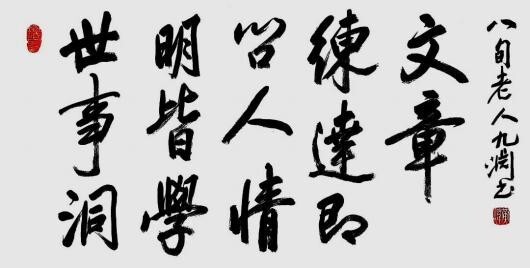 世事洞
明皆學
问人情
練達即
文章
八旬老人九渊书